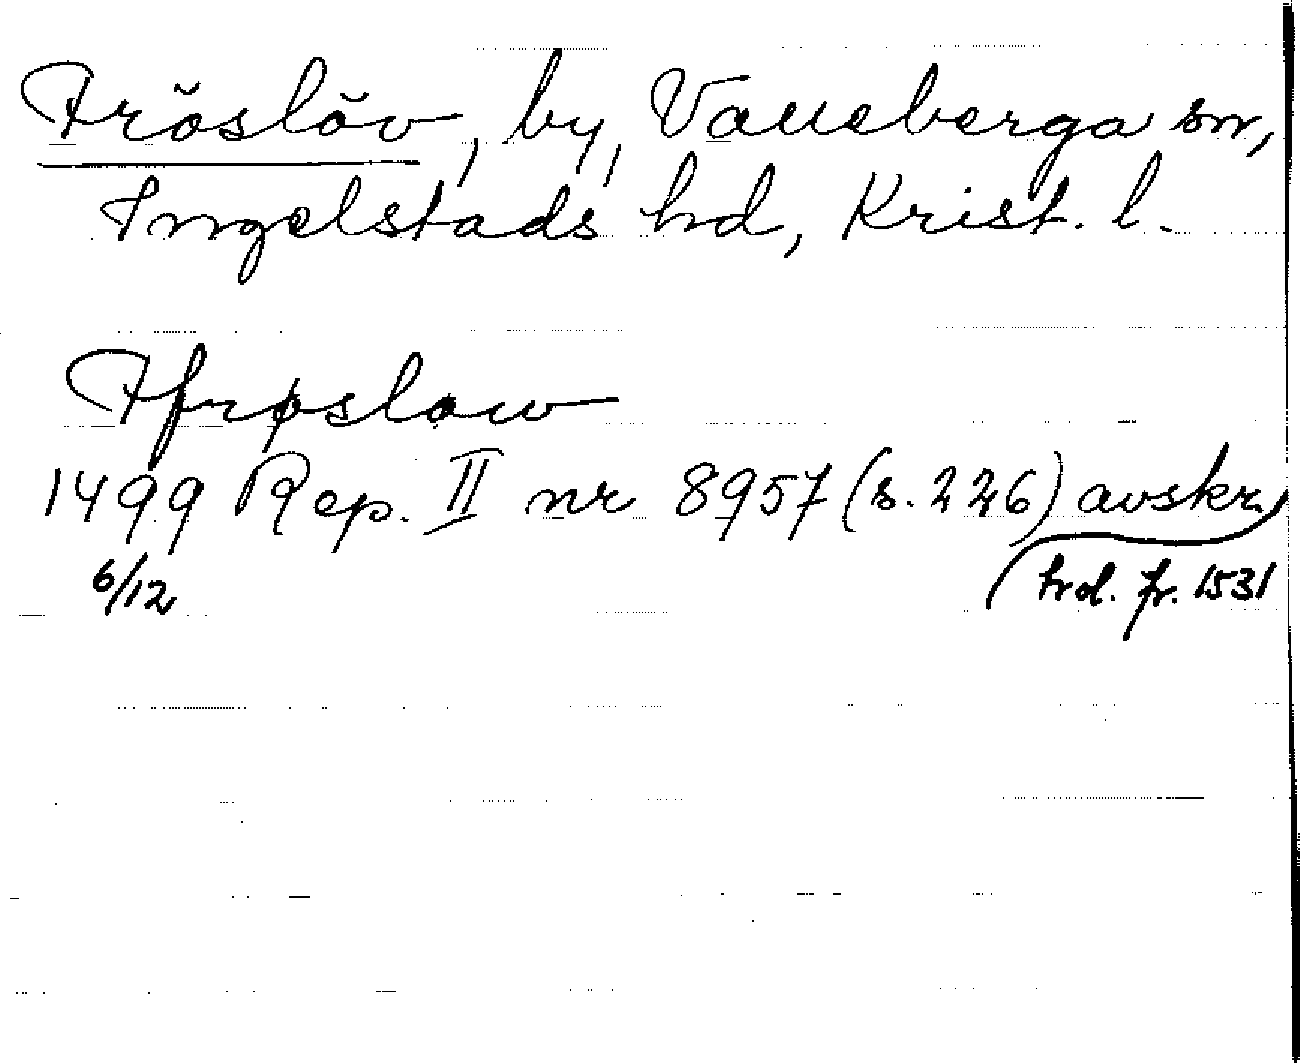 Fröslöv, by, Valleberga sn,
Ingelstads hd, Krist. l.
Ffrøsløw
1499 Rep. II nr 8957 (s. 226) avskr.
6/12 hd. fr. 1531